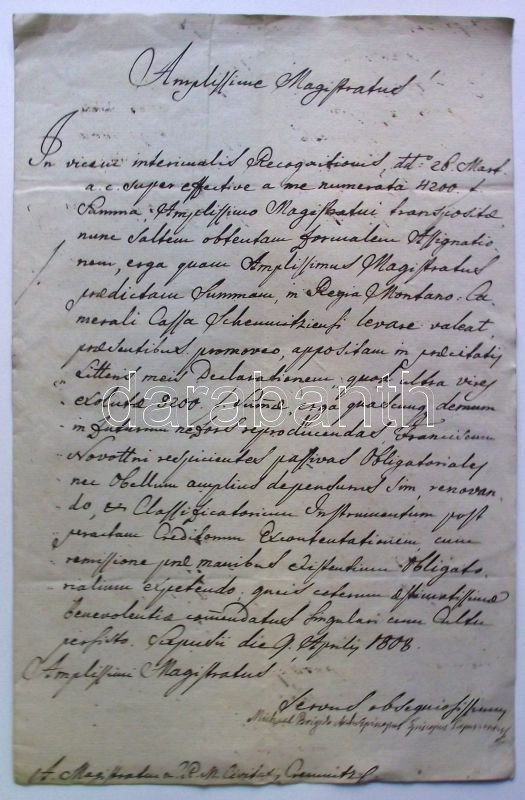 Amplissime Magistratus!
In vicem interimalis Recognitionis ddto 28. Mart.
a.c. super effective a me numerata 4200 f
Summa, Amplissimo Magistratui transposita
nunc saltem obtentam formalem Assignatio-
nem, erga quam Amplissimus Magistratus
prædictam Summam, in Regia Montano-Ca-
merali Cassa Schemnitziensi levare valeat
præsentibus promoveo, appositam in præcitatis
Litteris meis Declarationem, quod ultra vires
exoluta 2200 f Summa, erga qualicunq demum
in futurum reproducendas, Franciscum
Novottni respicientes passivas Obligatoriales
nec Obellum amplius dependsurus sim, renovan-
do, et Classificatorium Instrumentum post
peractam Creditorum Excontentationem cum
remissione præ manibus existentium Obligato-
rialium expetendo, queis ceterum æstimatissimæ
benevolentiæ comendatus singulari cum Cultu
persisto. Sapusii die 9. Aprilis 1808.
Amplissimi Magistratus
Servus obsequiosissimus
Michael Brigido Archi Episcopus Episcopus
Magistratui L. R. M. Civitat. Cremnitz
darabanth